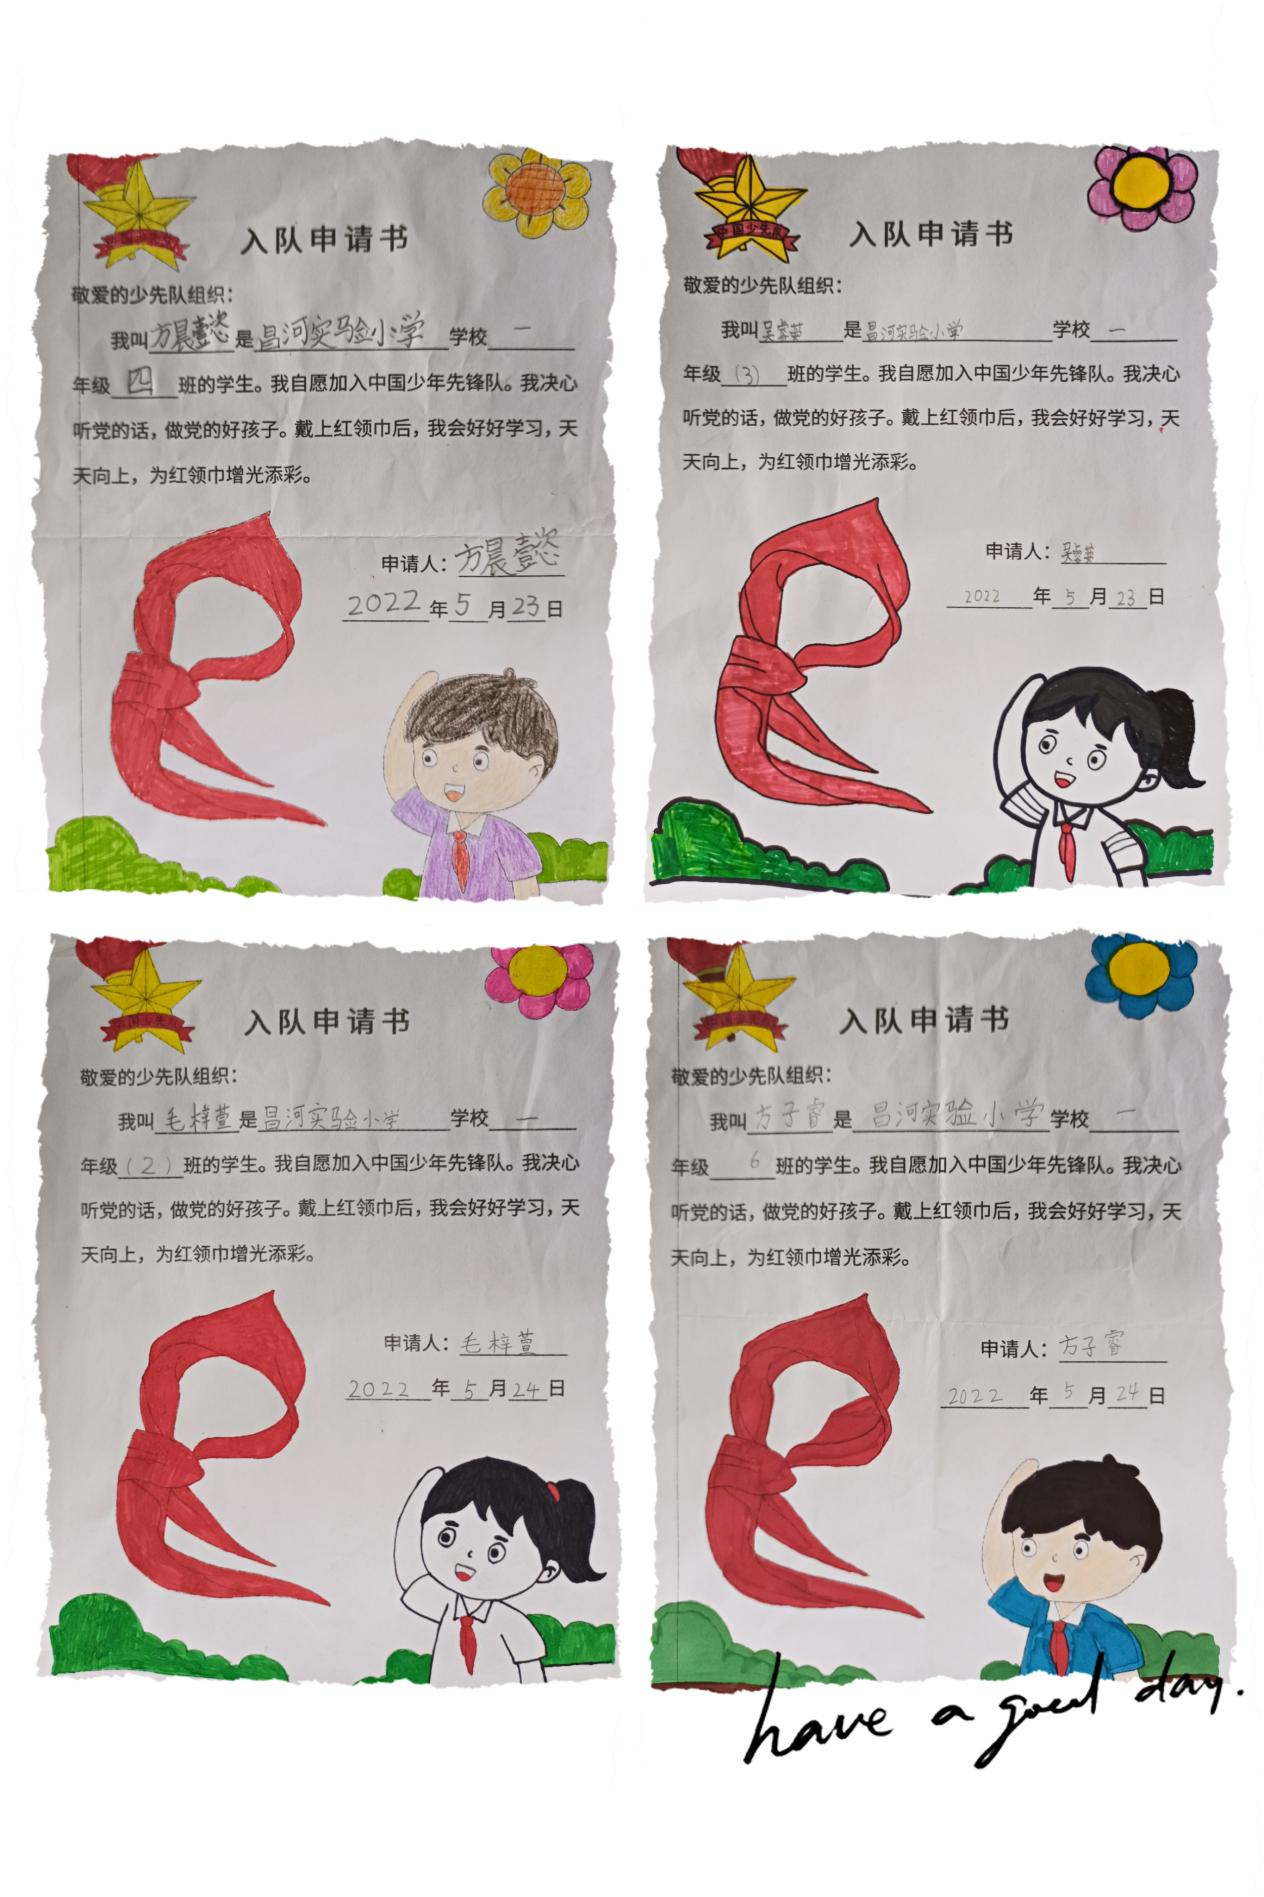 中国少先队
入队申请书
敬爱的少先队组织：
我叫方晨懿恣是昌河实验小学学校一
年级四班的学生。我自愿加入中国少年先锋队。我决心
听党的话，做党的好孩子。戴上红领巾后，我会好好学习，天
天向上，为红领巾增光添彩。
申请人：方晨懿恣
2022年5月23日
中国少先队
入队申请书
敬爱的少先队组织：
我叫吴睿英是昌河实验小学学校一
年级（3）班的学生。我自愿加入中国少年先锋队。我决心
听党的话，做党的好孩子。戴上红领巾后，我会好好学习，天
天向上，为红领巾增光添彩。
申请人：吴睿英
2022年5月23日
中国少先队
入队申请书
敬爱的少先队组织：
我叫毛梓萱是昌河实验小学学校一
年级（2）班的学生。我自愿加入中国少年先锋队。我决心
听党的话，做党的好孩子。戴上红领巾后，我会好好学习，天
天向上，为红领巾增光添彩。
申请人：毛梓萱
2022年5月24日
中国少先队
入队申请书
敬爱的少先队组织：
我叫方子睿是昌河实验小学学校一
年级6班的学生。我自愿加入中国少年先锋队。我决心
听党的话，做党的好孩子。戴上红领巾后，我会好好学习，天
天向上，为红领巾增光添彩。
申请人：方子睿
2022年5月24日
have a good day.